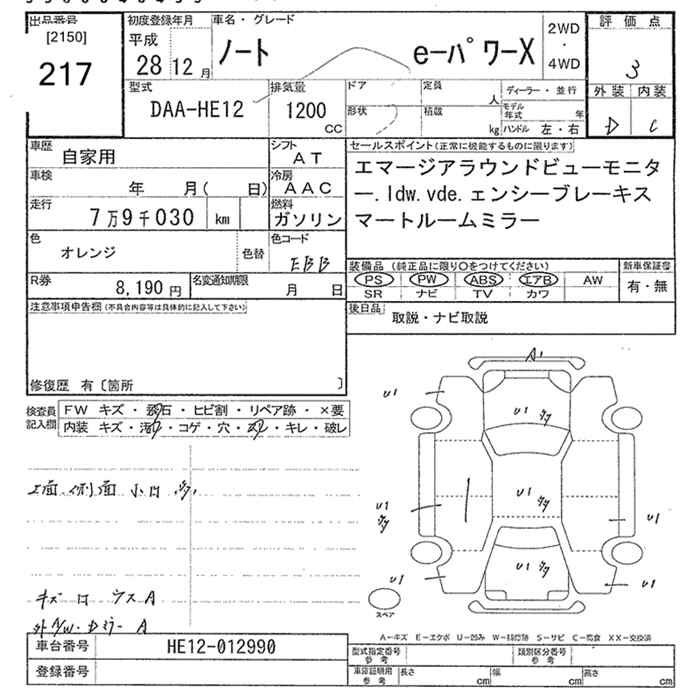 出品番号
[2150]
217
初度登録年月
平成
28 12 月
車名・グレード
ノート e-パワーX
2WD
・
4WD
評価点
3
外装 内装
D C
型式
DAA-HE12
排気量
1200
CC
ドア
形状
定員
人
積載
kg
ディーラー・並行
モデル年式 年
ハンドル 左・右
車歴
自家用
シフト
AT
車検
年 月( 日)
冷房
AAC
走行
7万9千030 km
燃料
ガソリン
色
オレンジ
色替
色コード
EBB
R券
8,190 円
名変通知期限
月 日
セールスポイント(正常に機能するものに限ります)
エマージアラウンドビューモニタ
ー.ldw.vde.ェンシーブレーキス
マートルームミラー
装備品 (純正品に限り○をつけてください)
PS PW ABS エアB AW
SR ナビ TV カワ
新車保証書
有・無
後日品
取説・ナビ取説
注意事項申告欄(不具合内容等は具体的に記入して下さい)
修復歴 有〔箇所 〕
検査員
記入欄
FW キズ・飛石・ヒビ割・リペア跡・×要
内装 キズ・汚れ・コゲ・穴・スレ・キレ・破レ
A1
U1
U1
U1
U1
U1
U1
U1
U1
スペア
キズ
A
A
A-キズ E-エクボ U-凹み W-補修跡 S-サビ C-腐食 XX-交換済
車台番号
HE12-012990
登録番号
型式指定番号
参考
類別区分番号
参考
車庫証明用
参考
長さ cm
幅 cm
高さ cm